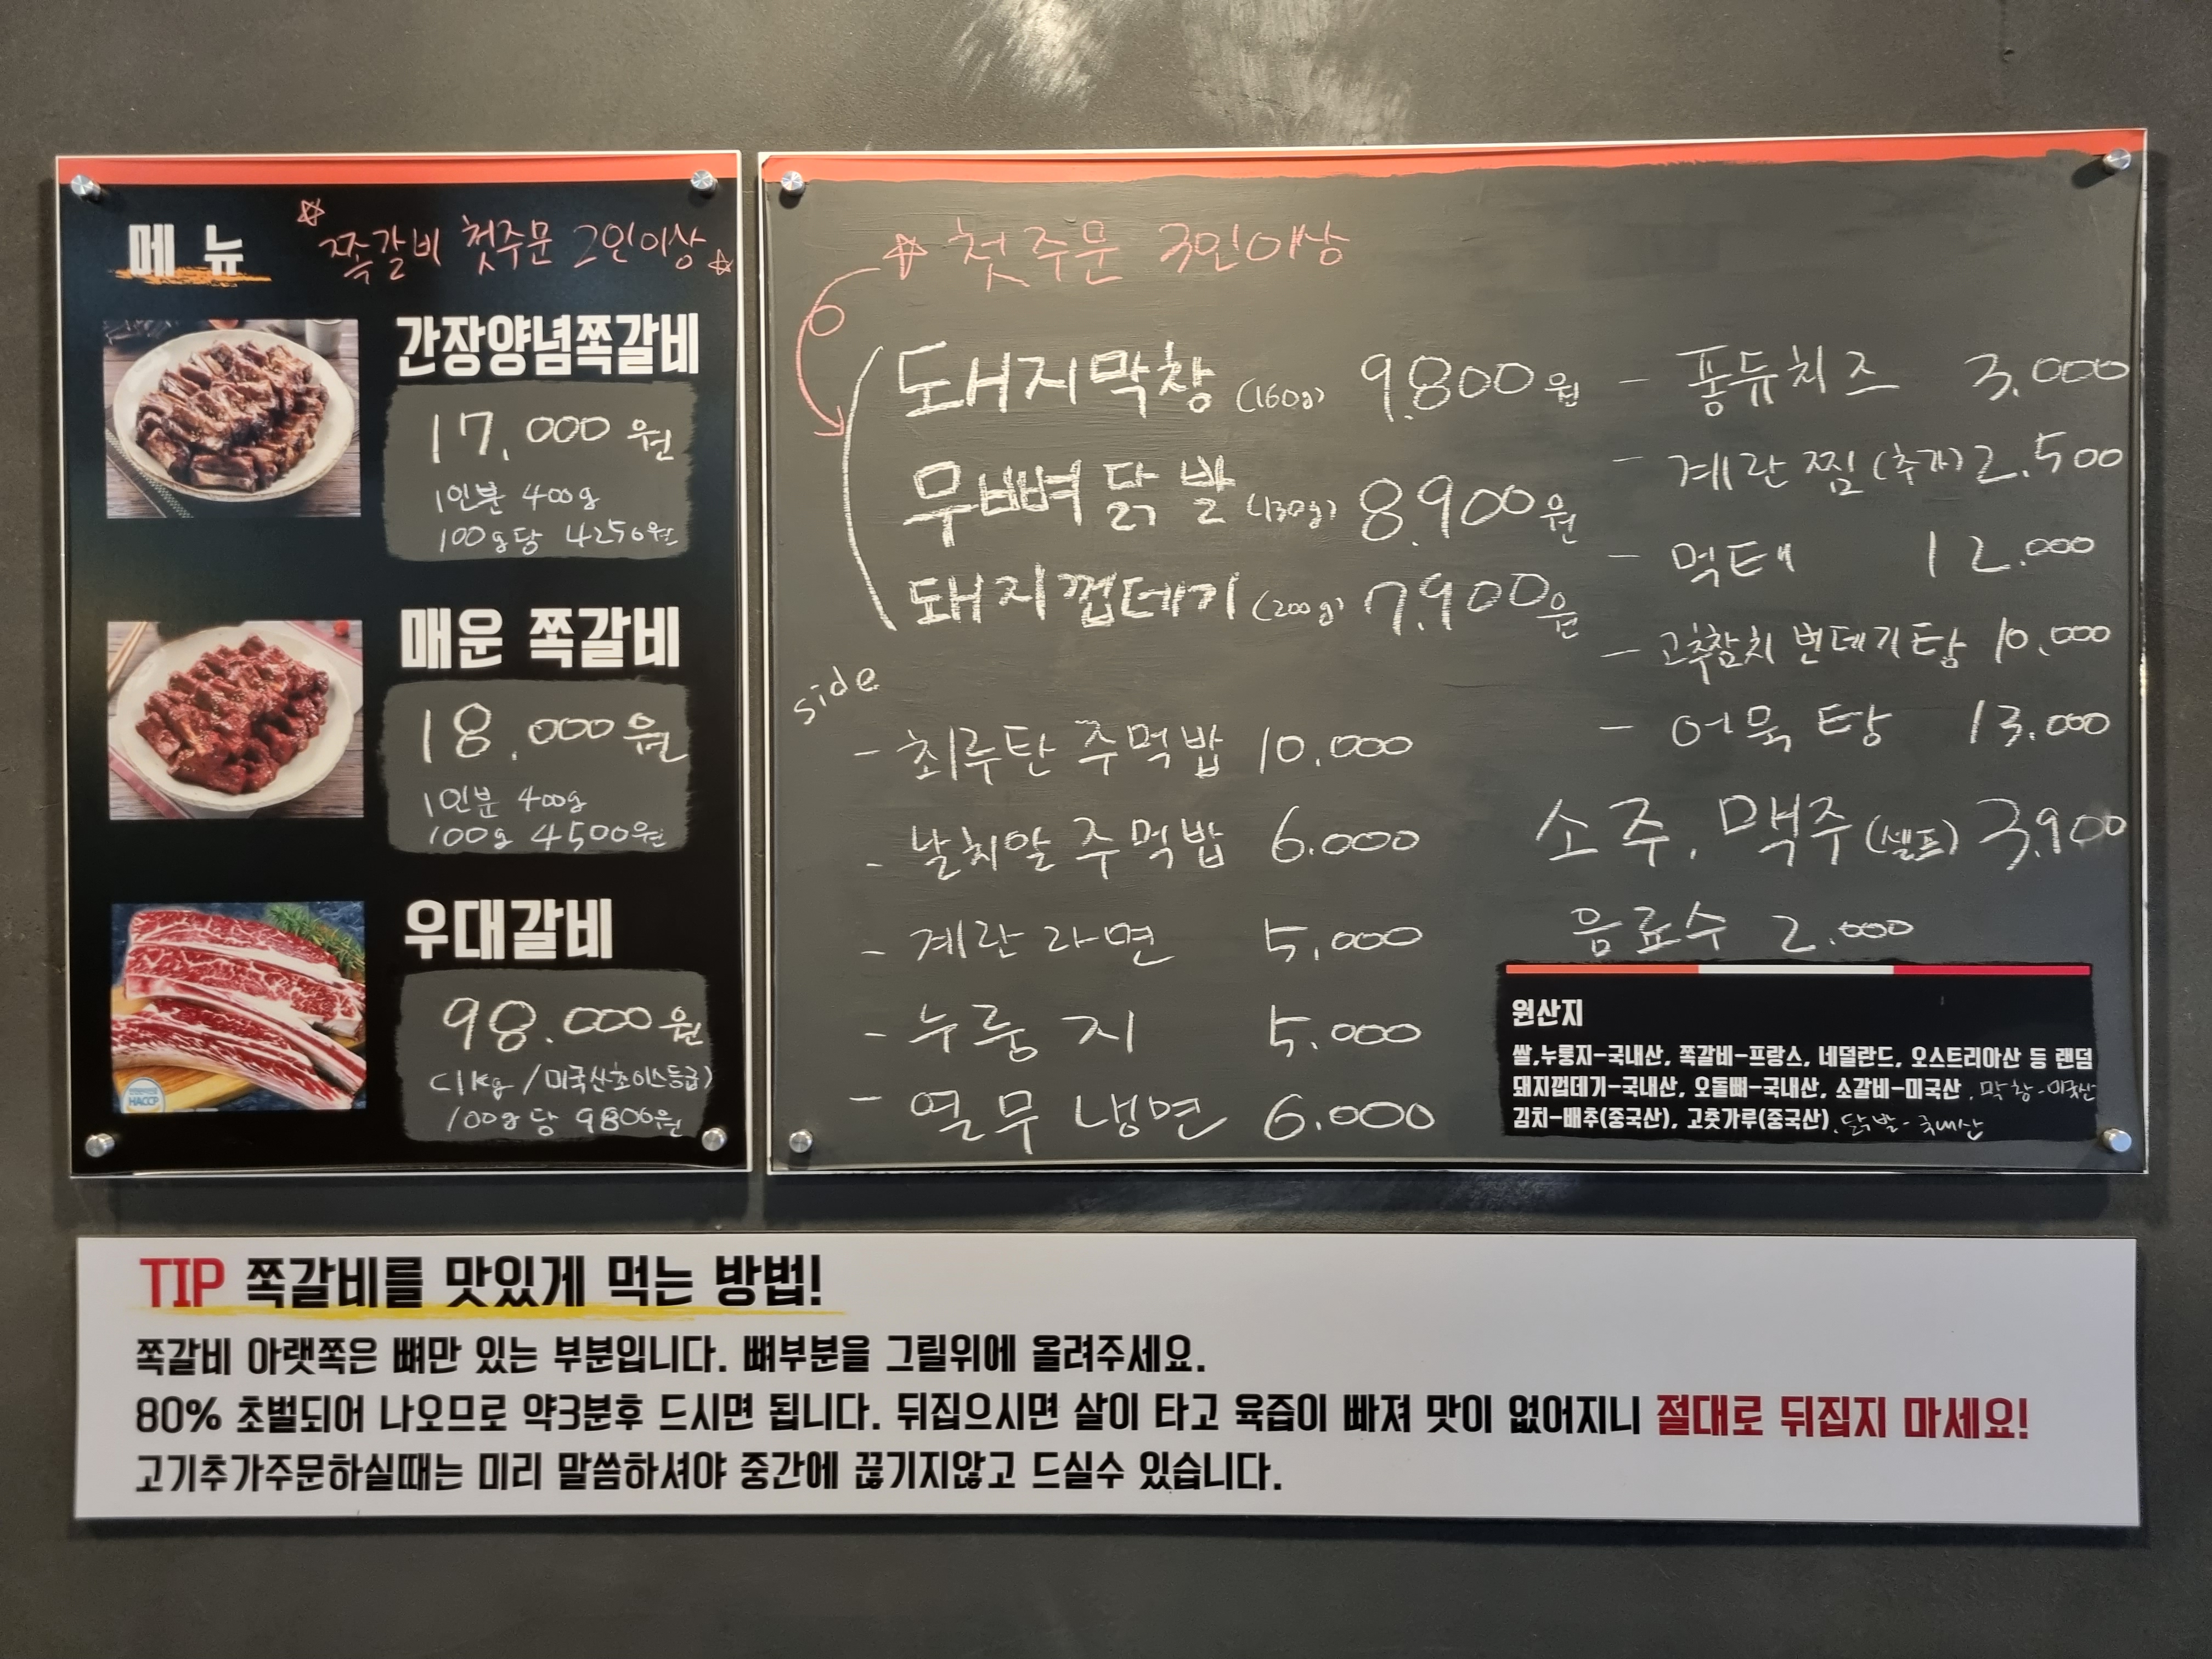 메 뉴
쪽갈비 첫주문 2인이상
간장양념쪽갈비
17.000원
1인분 400g
100g당 4250원
매운 쪽갈비
18.000원
1인분 400g
100g 4500원
우대갈비
98.000원
(1kg/미국산초이스등급)
100g당 9800원
HACCP
첫주문 3인이상
돼지막창 (160g) 9.800원
무뼈닭발 (130g) 8.900원
돼지껍데기 (200g) 7.900원
side
- 최루탄 주먹밥 10.000
- 날치알 주먹밥 6.000
- 계란라면 5.000
- 누룽지 5.000
- 열무냉면 6.000
- 퐁듀치즈 3.000
- 계란찜(추가) 2.500
- 먹태 12.000
- 고추참치 번데기탕 10.000
- 어묵탕 13.000
소주, 맥주(셀프) 3.900
음료수 2.000
원산지
쌀,누룽지-국내산, 쪽갈비-프랑스, 네덜란드, 오스트리아산 등 랜덤
돼지껍데기-국내산, 오돌뼈-국내산, 소갈비-미국산, 막창-미국산
김치-배추(중국산), 고춧가루(중국산), 닭발-국내산
TIP 쪽갈비를 맛있게 먹는 방법!
쪽갈비 아랫쪽은 뼈만 있는 부분입니다. 뼈부분을 그릴위에 올려주세요.
80% 초벌되어 나오므로 약3분후 드시면 됩니다. 뒤집으시면 살이 타고 육즙이 빠져 맛이 없어지니 절대로 뒤집지 마세요!
고기추가주문하실때는 미리 말씀하셔야 중간에 끊기지않고 드실수 있습니다.